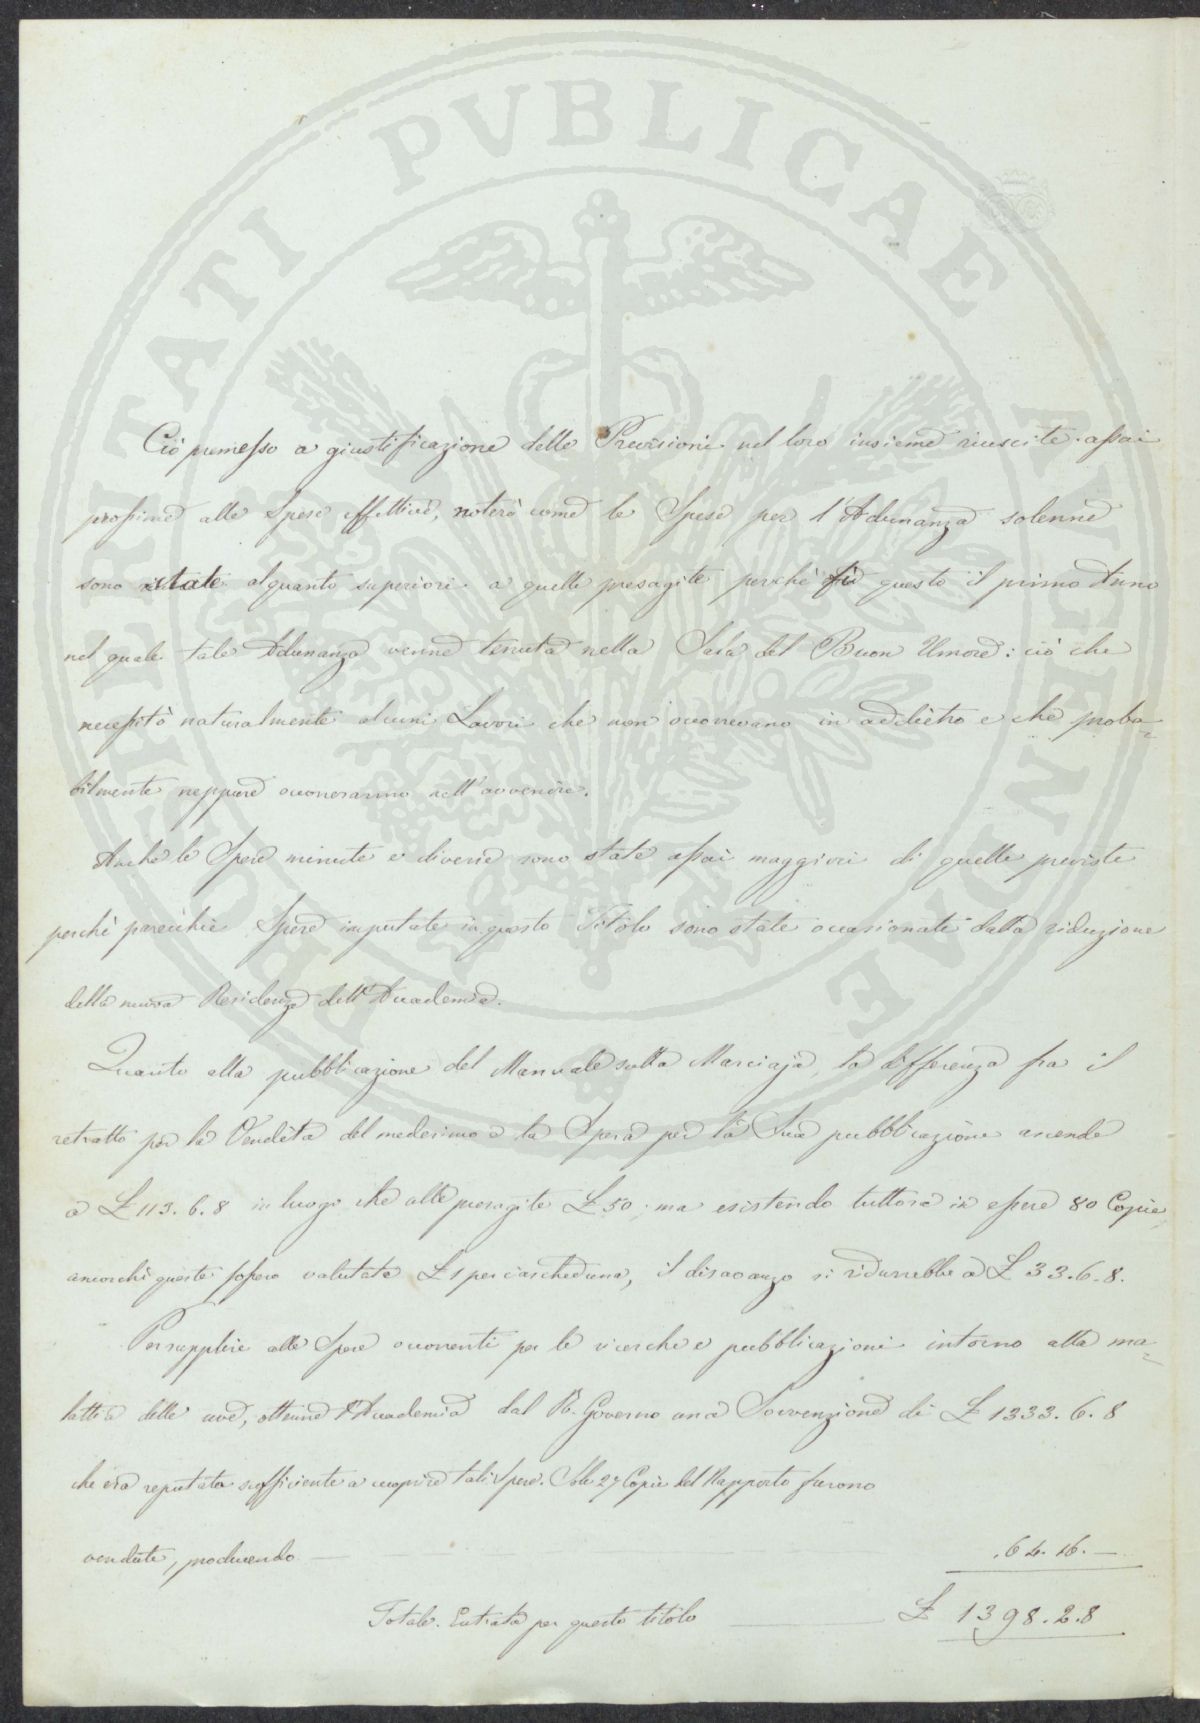 PROSPERITATI PVBLICAE AVGENDAE
Ciò premesso a giustificazione delle Previsioni nel loro insieme riuscite assai
prossime alle Spese effettive, noterò come le Spese per l'Adunanza solenne
sono state alquanto superiori a quelle presagite perchè fù questo il primo Anno
nel quale tale Adunanza venne tenuta nella Sala del Buon Umore: ciò che
necessitò naturalmente alcuni Lavori che non occorrevano in addietro e che proba=
bilmente neppure occorreranno nell'avvenire.
Anche le Spese minute e diverse sono state assai maggiori di quelle previste
perchè parecchie Spese imputate in questo Titolo sono state occasionate dalla riduzione
della nuova Residenza dell'Accademia.
Quanto alla pubblicazione del Manuale sulla Marciaja, la differenza fra il
retratto per la Vendita del medesimo e la Spesa per la Sua pubblicazione ascende
a £ 113. 6. 8 in luogo che alle presagite £ 50; ma esistendo tuttora in essere 80 Copie
ancorchè queste fossero valutate £ 1 per ciascheduna, il disavanzo si ridurrebbe a £ 33. 6. 8.
Per supplire alle Spese occorrenti per le ricerche e pubblicazioni intorno alla ma=
lattia delle uve, ottenne l'Accademia dal R. Governo una Sovvenzione di £ 1333. 6. 8
che era reputata sufficiente a cuoprire tali Spese. Sole 27 Copie del Rapporto furono
vendute, producendo 64. 16. —
Totale Entrata per questo titolo £ 1398. 2. 8